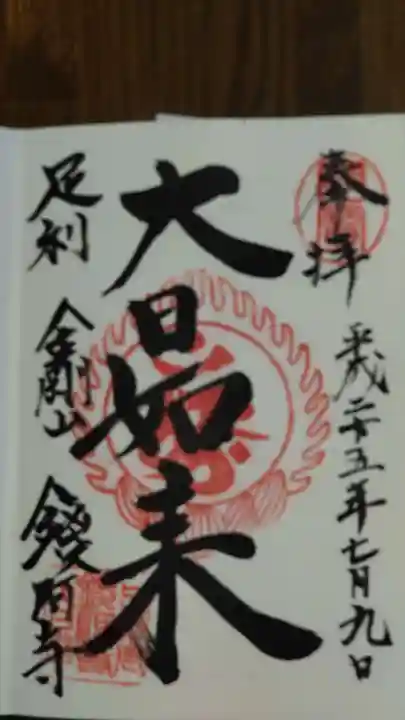 奉拝
平成二十五年七月九日
大日如来
足利 金剛山
鑁阿寺